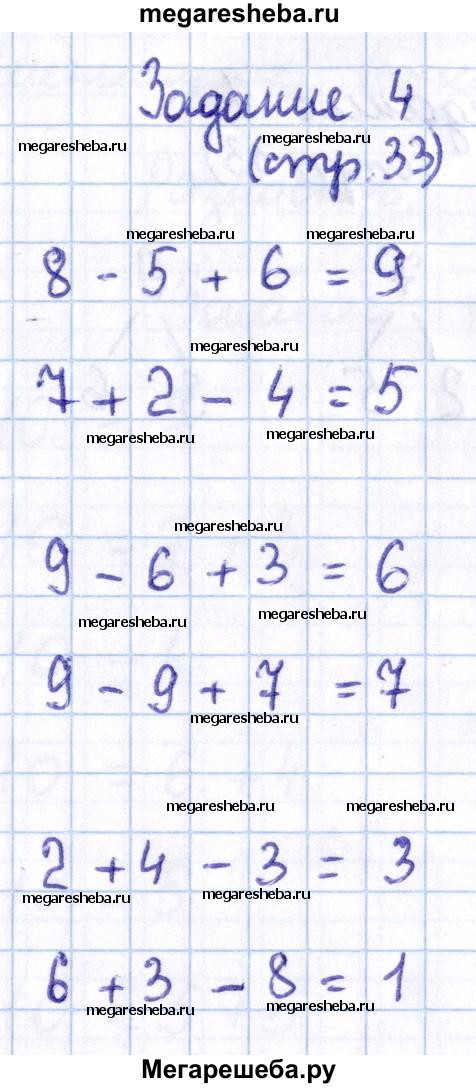 megaresheba.ru
Задание 4
megaresheba.ru megaresheba.ru
(стр. 33)
megaresheba.ru megaresheba.ru
8 - 5 + 6 = 9
megaresheba.ru
7 + 2 - 4 = 5
megaresheba.ru megaresheba.ru
megaresheba.ru
9 - 6 + 3 = 6
megaresheba.ru megaresheba.ru
9 - 9 + 7 = 7
megaresheba.ru
megaresheba.ru megaresheba.ru
2 + 4 - 3 = 3
megaresheba.ru megaresheba.ru
6 + 3 - 8 = 1
megaresheba.ru megaresheba.ru
Мегарешеба.ру